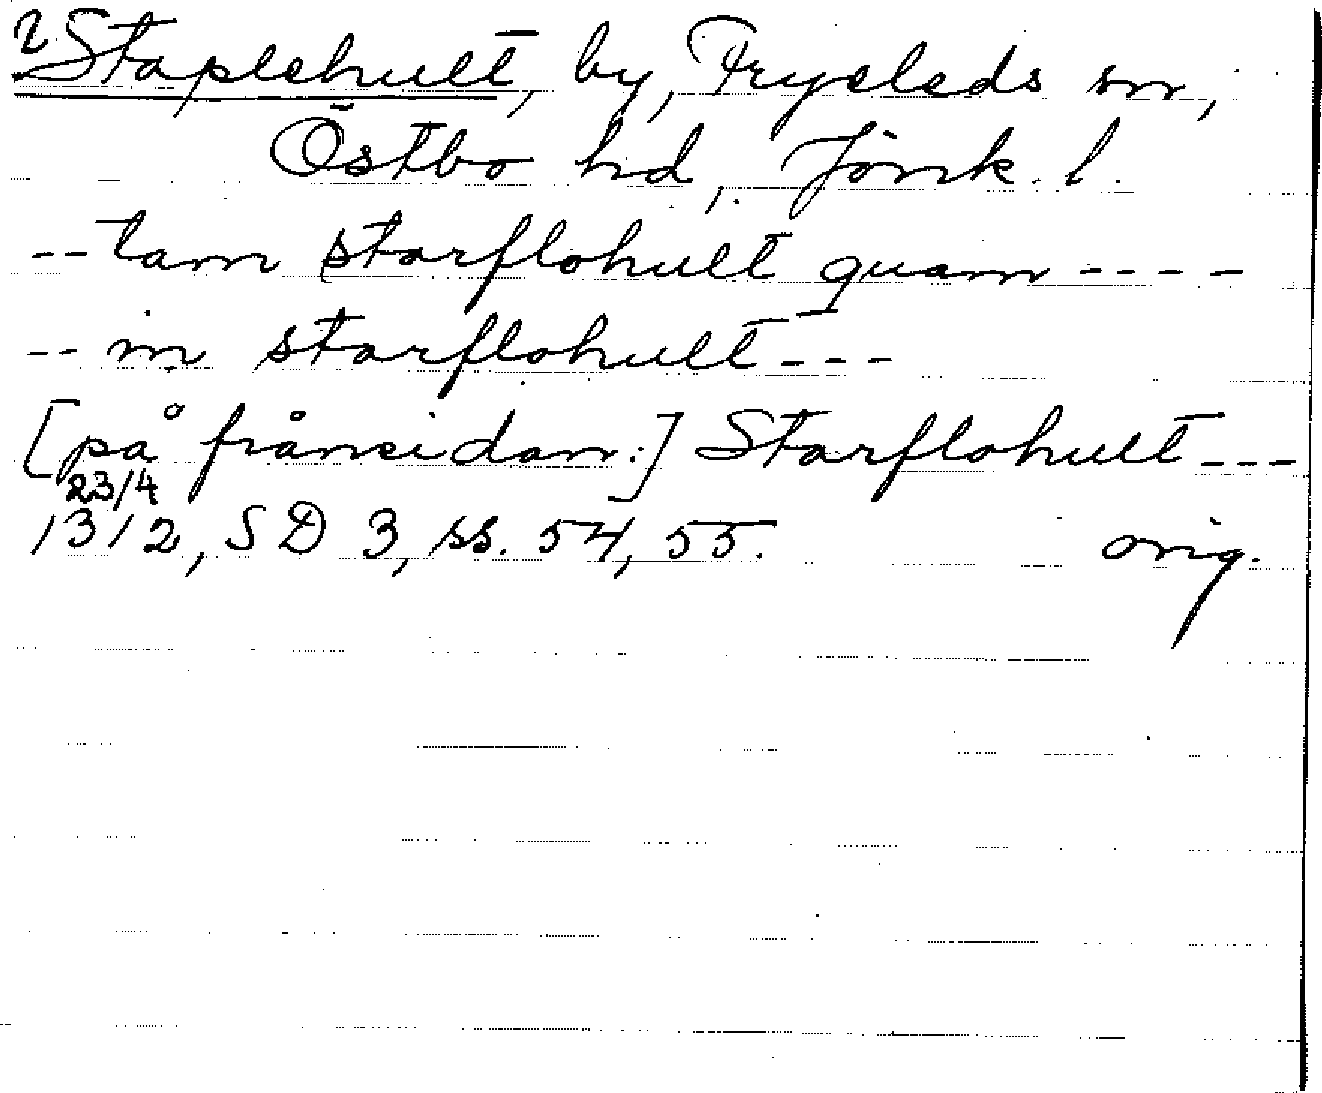 ? Staplehult, by, Fryeleds sn,
Östbo hd, Jönk. l.
-- tam starflohult quam ----
-- in starflohult ---
[på frånsidan:] Starflohult ---
23/4
1312, SD 3, ss. 54, 55. orig.